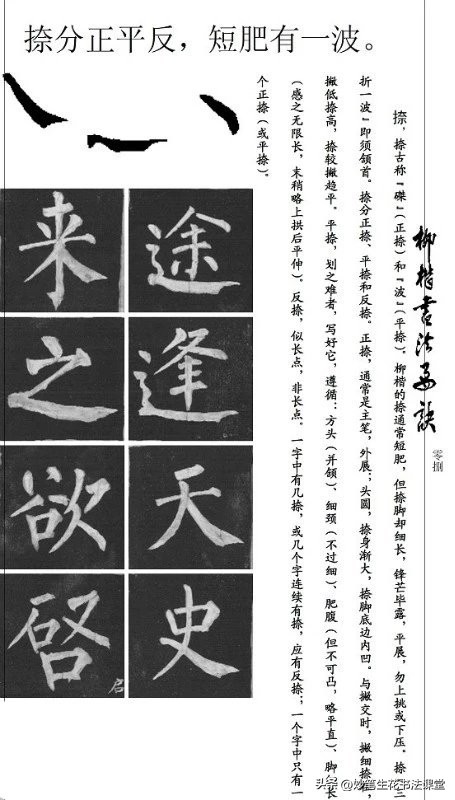 捺分正平反，短肥有一波。
柳楷书法要诀
零捌
捺，捺古称“磔”（正捺）和“波”（平捺）。柳楷的捺通常短肥，但捺脚却细长，锋芒毕露，平展，勿上挑或下压。捺“三
折一波”即须领首。捺分正捺、平捺和反捺。正捺，通常是主笔，外展；头圆，捺身渐大，捺脚底边内凹。与撇交时，撇细捺粗，
撇低捺高，捺较撇趋平。平捺，划之难者，写好它，遵循：方头（并领）、细颈（不过细）、肥腹（但不可凸，略平直）、脚长
（感之无限长，末稍略上拱后平伸）。反捺，似长点，非长点。一字中有几捺，或几个字连续有捺，应有反捺；一个字中只有一
个正捺（或平捺）。
途逢天史
来之欲啓
启
头条 @妙笔生花书法课堂